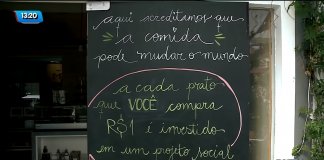 13:20
aqui acreditamos que
a comida
pode mudar o mundo
a cada prato
que VOCÊ compra
R$1 é investido
em um projeto social